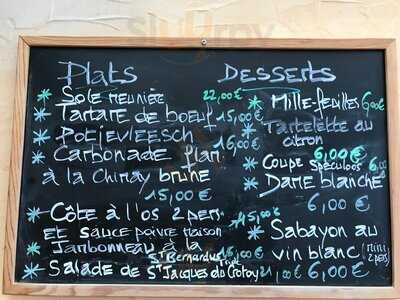 Plats
* Sole meunière 22,00€
* Tartare de boeuf 15,00€
* Potjevleesch 16,00€
* Carbonade flam.
à la Chimay brune
15,00€
* Côte à l'os 2 pers 45,00€
et sauce poivre maison
* Jambonneau à la
St Bernardus 16,00€
* Salade de St Jacques du Crotoy 21,00€
Desserts
* Mille-feuilles 6,00€
* Tartelette au
citron 6,00€
* Coupe Spéculoos 6,00
* Dame blanche
6,00€
* Sabayon au
vin blanc (mini
2 pers)
6,00€